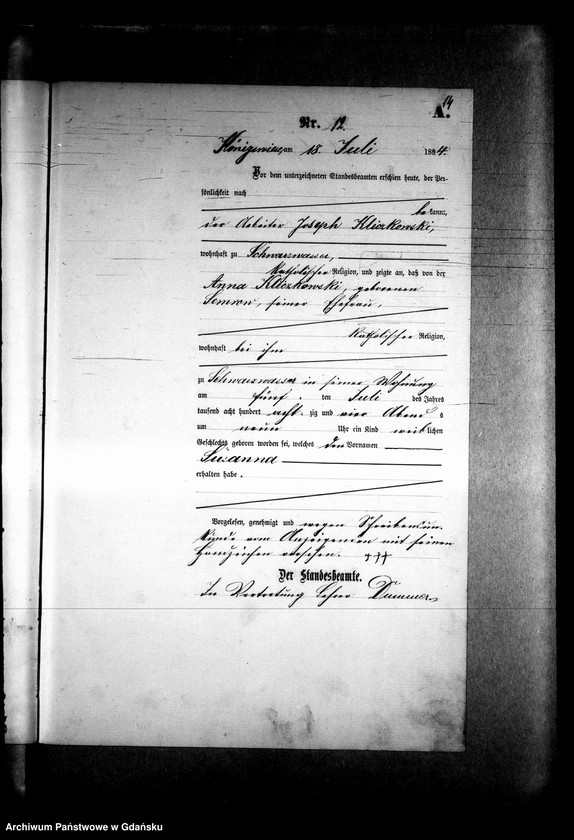 14
A.
Nr. 12.
am 18. Juli 1884.
Vor dem unterzeichneten Standesbeamten erschien heute, der Per-
sönlichkeit nach
bekannt,
der Arbeiter Joseph Kliczkowski,
wohnhaft zu Schwarzwasser,
katholischer Religion, und zeigte an, daß von der
Anna Kliczkowski, geborenen
seiner Ehefrau,
katholischer Religion,
wohnhaft bei ihm
zu Schwarzwasser in seiner Wohnung
am fünf . den Juli des Jahres
tausend acht hundert acht zig und vier Abend s
um neun Uhr ein Kind weib lichen
Geschlechts geboren worden sei, welches den Vornamen
Susanna
erhalten habe.
Vorgelesen, genehmigt und wegen Schreibensun-
kunde vom Anzeigenden mit seinem
Handzeichen versehen. †††
Der Standesbeamte.
In Vertretung Lehrer
Archiwum Państwowe w Gdańsku